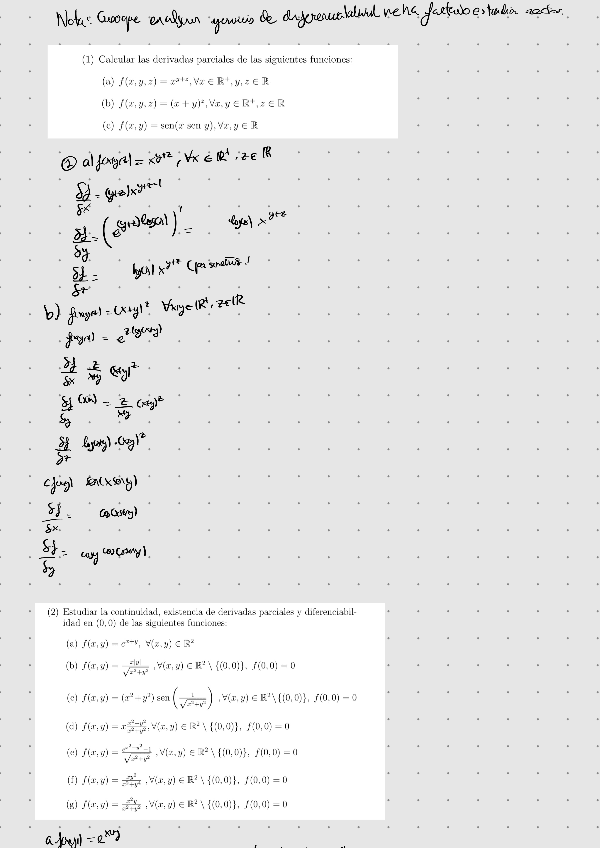 Nota: Aunque en algunos ejercicios de diferenciabilidad me ha faltado estudiar
(1) Calcular las derivadas parciales de las siguientes funciones:
(a) f(x, y, z) = x^{y+z}, ∀x ∈ ℝ⁺, y, z ∈ ℝ
(b) f(x, y, z) = (x + y)^z, ∀x, y ∈ ℝ⁺, z ∈ ℝ
(c) f(x, y) = sen(x sen y), ∀x, y ∈ ℝ
① a) f(x,y,z) = x^{y+z}, ∀x ∈ ℝ⁺, z ∈ ℝ
δf/δx = (y+z) x^{y+z-1}
δf/δy = (e^{(y+z)log(x)})' = log(x) x^{y+z}
δf/δz = log(x) x^{y+z} (por simetría)
b) f(x,y,z) = (x+y)^z ∀x,y ∈ ℝ⁺, z ∈ ℝ
f(x,y,z) = e^{z log(x+y)}
δf/δx z/x+y (x+y)^z
δf/δy = z/x+y (x+y)^z
δf/δz log(x+y) · (x+y)^z
c f(x,y) sen(x sen y)
δf/δx = cos(x sen y)
δf/δy = cos y cos(x sen y)
(2) Estudiar la continuidad, existencia de derivadas parciales y diferenciabil-
idad en (0, 0) de las siguientes funciones:
(a) f(x, y) = e^{x+y}, ∀(x, y) ∈ ℝ²
(b) f(x, y) = x|y|/√(x²+y²), ∀(x, y) ∈ ℝ² \ {(0, 0)}, f(0, 0) = 0
(c) f(x, y) = (x²+y²) sen(1/√(x²+y²)), ∀(x, y) ∈ ℝ² \ {(0, 0)}, f(0, 0) = 0
(d) f(x, y) = x (x²−y²)/(x²+y²), ∀(x, y) ∈ ℝ² \ {(0, 0)}, f(0, 0) = 0
(e) f(x, y) = (e^{x²+y²}−1)/√(x²+y²), ∀(x, y) ∈ ℝ² \ {(0, 0)}, f(0, 0) = 0
(f) f(x, y) = xy²/(x²+y²), ∀(x, y) ∈ ℝ² \ {(0, 0)}, f(0, 0) = 0
(g) f(x, y) = x²y/(x²+y²), ∀(x, y) ∈ ℝ² \ {(0, 0)}, f(0, 0) = 0
a. f(x,y) = e^{x+y}